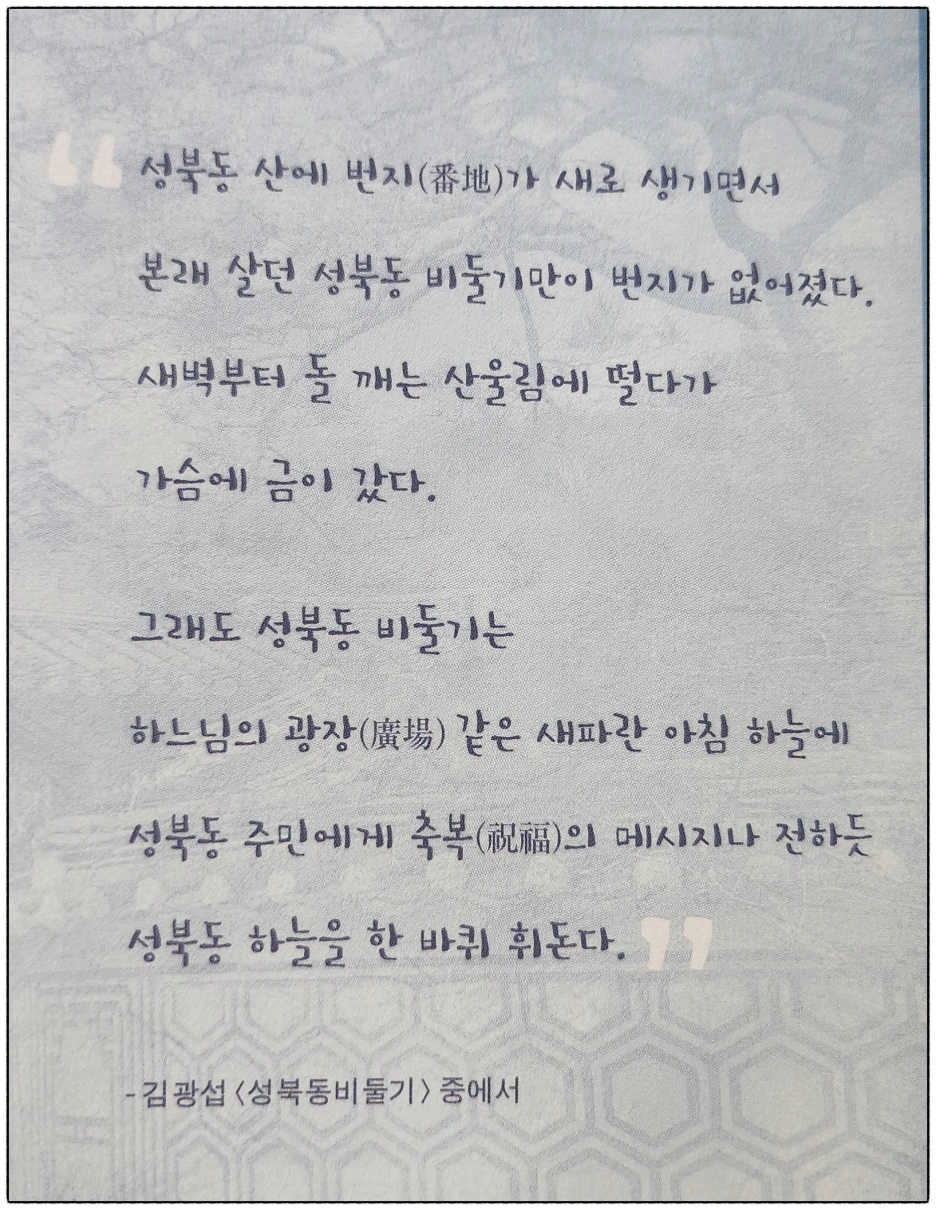 “ 성북동 산에 번지(番地)가 새로 생기면서
본래 살던 성북동 비둘기만이 번지가 없어졌다.
새벽부터 돌 깨는 산울림에 떨다가
가슴에 금이 갔다.
그래도 성북동 비둘기는
하느님의 광장(廣場) 같은 새파란 아침 하늘에
성북동 주민에게 축복(祝福)의 메시지나 전하듯
성북동 하늘을 한 바퀴 휘돈다. ”
- 김광섭 〈성북동비둘기〉 중에서